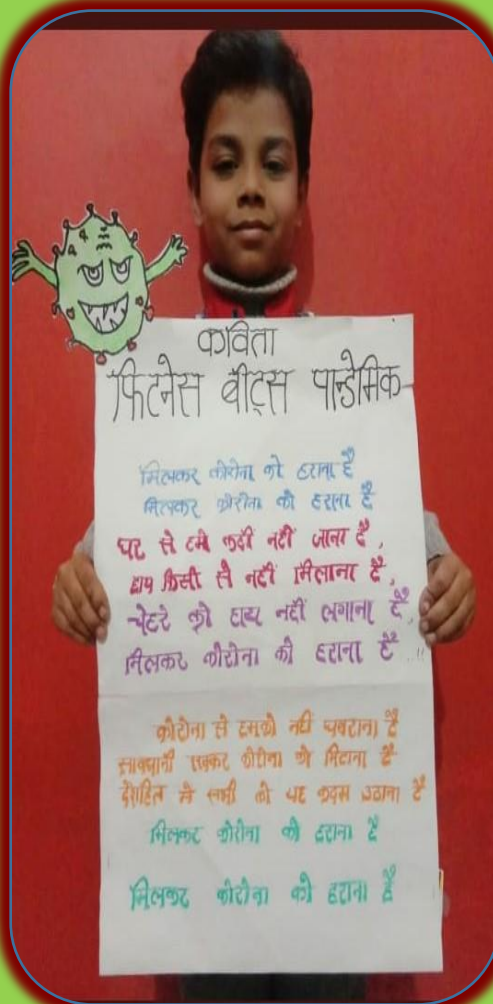 कविता
फिटनेस बीट्स पान्डेमिक
मिलकर कोरोना को हराना है
मिलकर कोरोना को हराना है
घर से हमे कहीं नहीं जाना है,
हाथ किसी से नहीं मिलाना है,
चेहरे को हाथ नहीं लगाना है,
मिलकर कोरोना को हराना है...!!
कोरोना से हमको नहीं घबराना है
सावधानी रखकर कोरोना को मिटाना है
देशहित मे सभी को यह कदम उठाना है
मिलकर कोरोना को हराना है
मिलकर कोरोना को हराना है